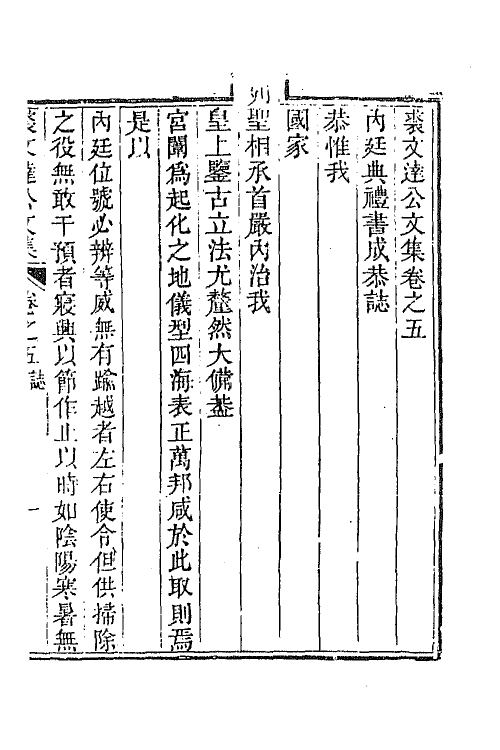 裘文達公文集卷之五
內廷典禮書成恭誌
恭惟我
國家
列聖相承首嚴內治我
皇上鑒古立法尤釐然大備葢
宮闈爲起化之地儀型四海表正萬邦咸於此取則焉
是以
內廷位號必辨等威無有踰越者左右使令但供掃除
之役無敢干預者寢興以節作止以時如陰陽寒暑無
裘文達公文集 卷之五 誌 一